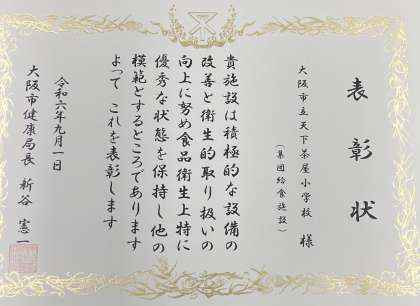 表彰状
大阪市立天下茶屋小学校 様
(集団給食施設)
貴施設は積極的な設備の
改善と衛生的取り扱いの
向上に努め食品衛生上特に
優秀な状態を保持し他の
模範とするところであります
よって これを表彰します
令和六年九月一日
大阪市健康局長 新谷 憲一